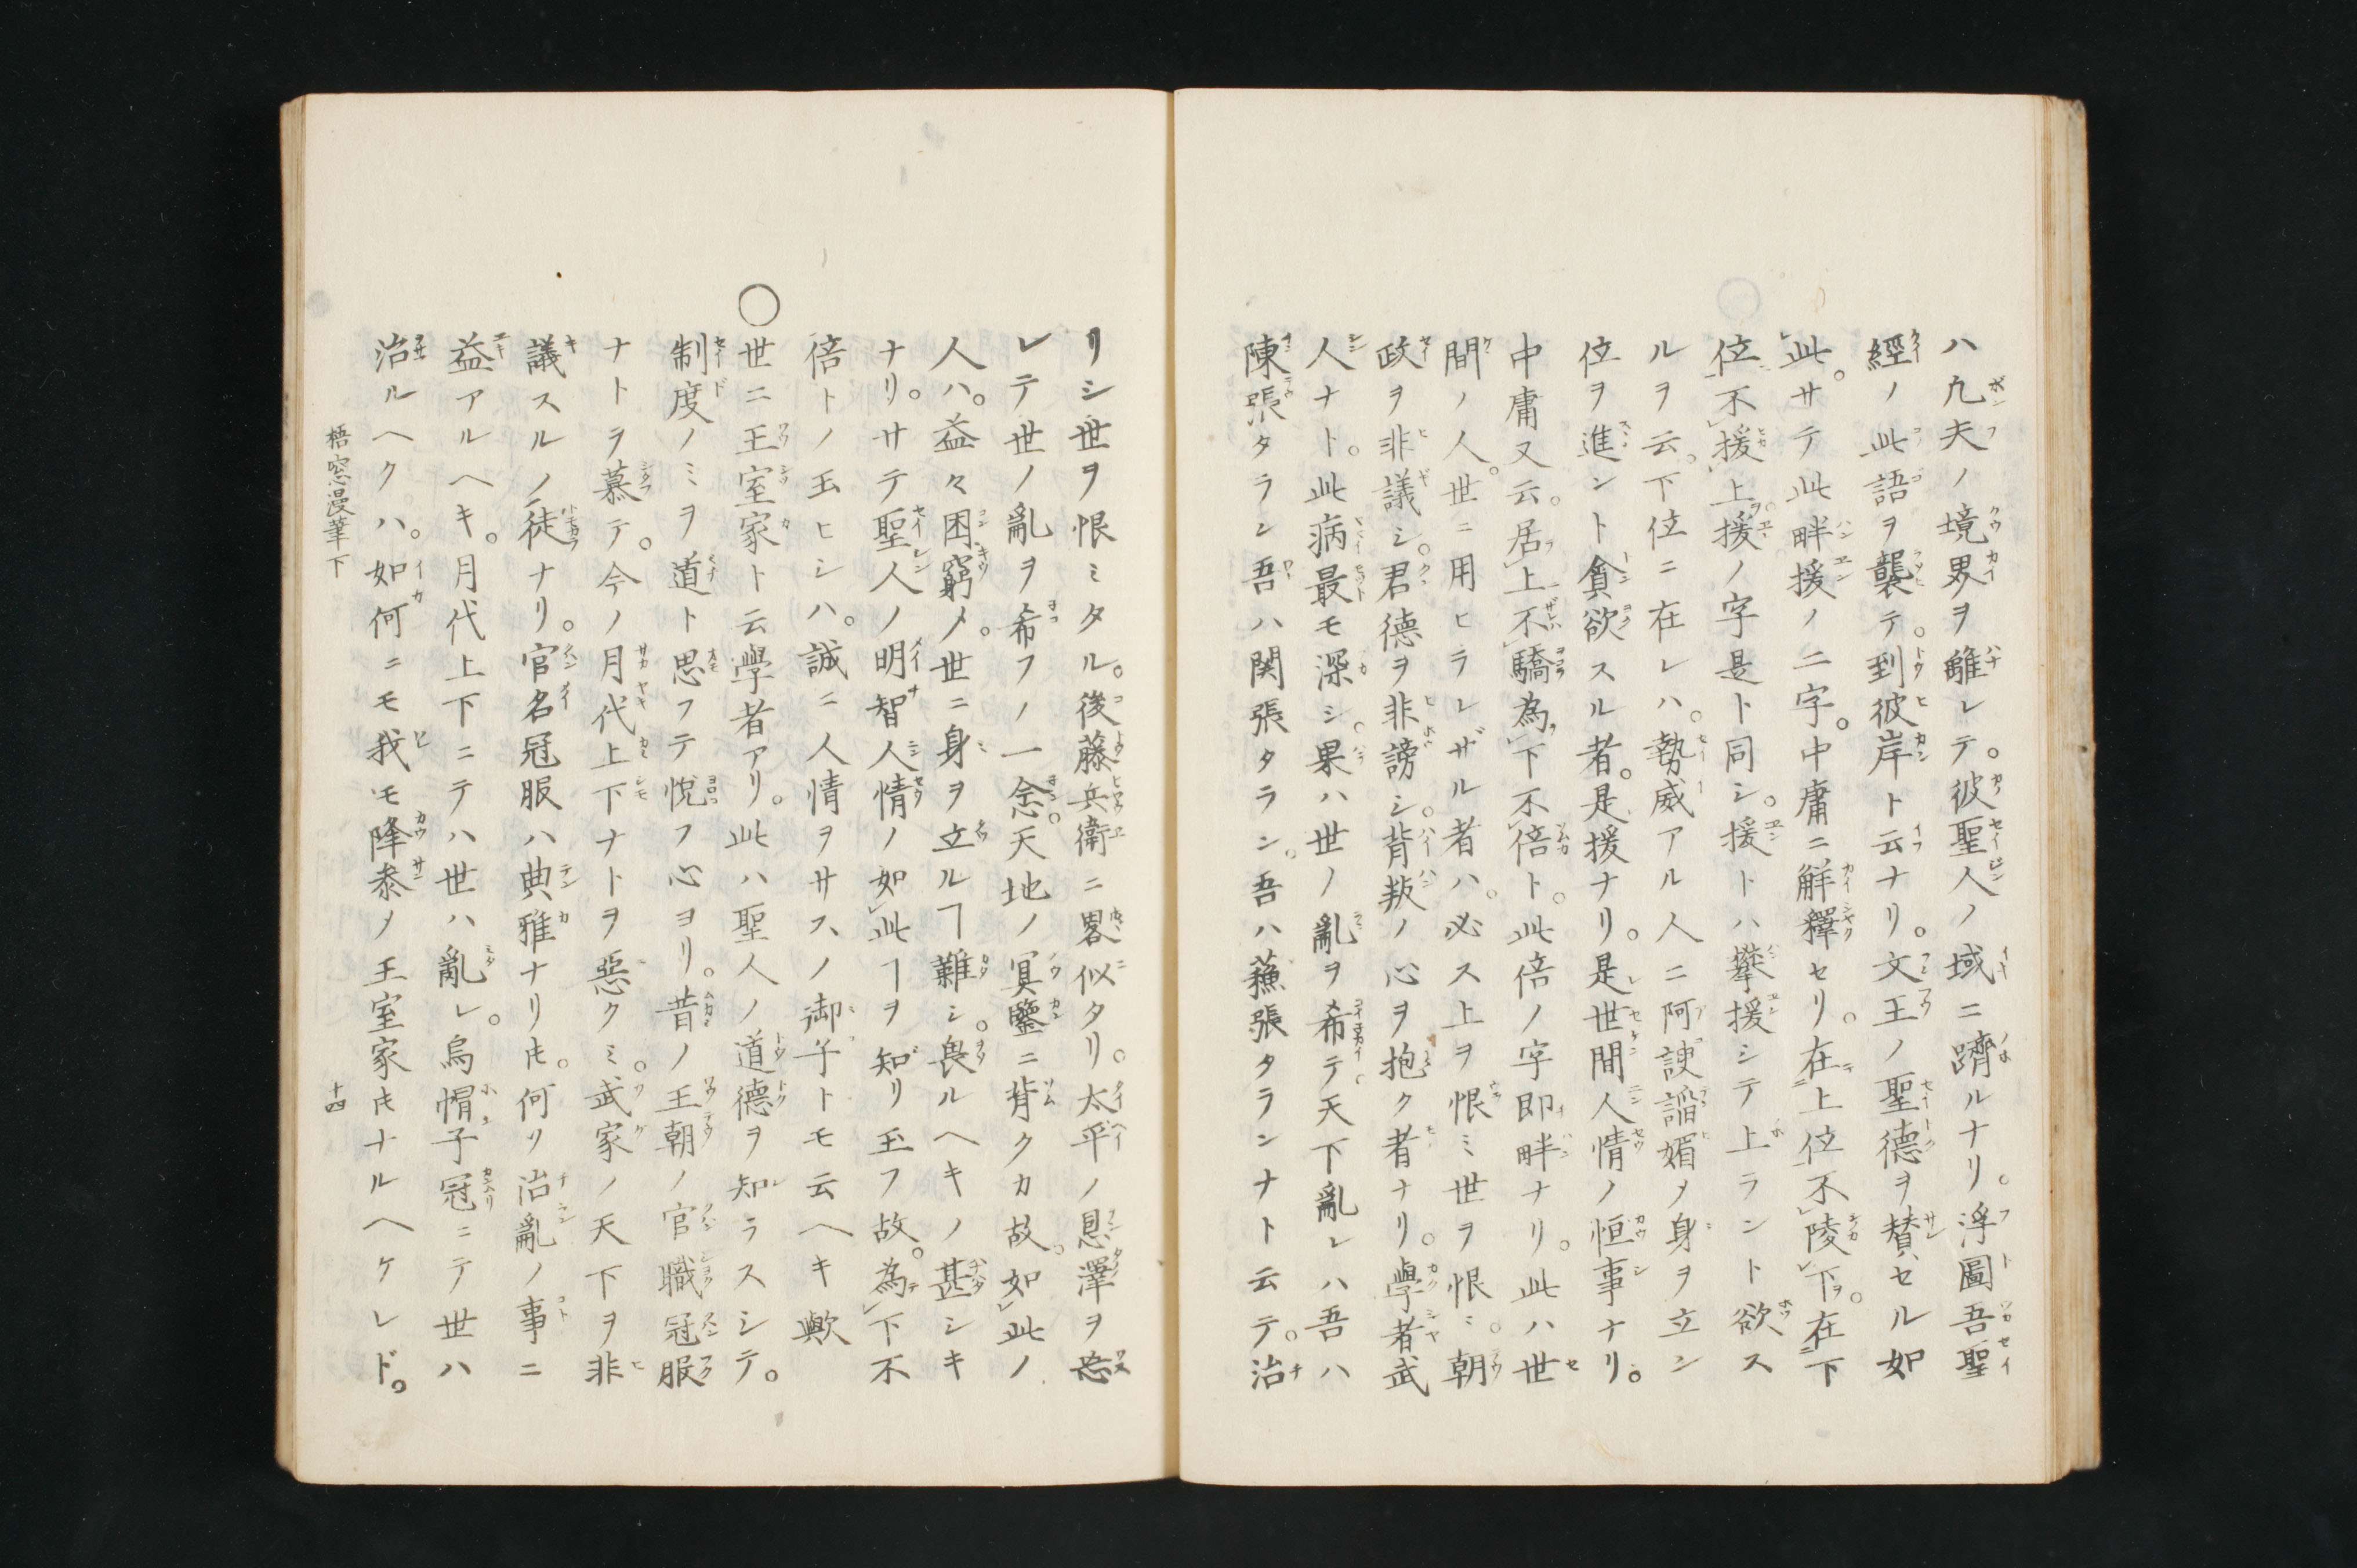 ハ凢夫ノ境界ヲ離レテ。彼聖人ノ域ニ躋ルナリ。浮圖吾聖
經ノ此語ヲ襲テ。到彼岸ト云ナリ。文王ノ聖德ヲ賛セル如
此。サテ此畔援ノ二字。中庸ニ解釋セリ。在上位不陵下。在下
位不援上。援ノ字是ト同シ。援トハ攀援シテ上ラント欲ス
ルヲ云。下位ニ在レハ。勢威アル人ニ阿諛諂媚メ身ヲ立ン
位ヲ進ント貪欲スル者。是援ナリ。是世間人情ノ恒事ナリ。
中庸又云。居上不驕為下不倍ト。此倍ノ字即畔ナリ。此ハ世
間ノ人。世ニ用ヒラレザル者ハ。必ス上ヲ恨ミ世ヲ恨ミ。朝
政ヲ非議シ。君德ヲ非謗シ。背叛ノ心ヲ抱ク者ナリ。學者武
人ナト。此病最モ深シ。果ハ世ノ亂ヲ希テ。天下亂レハ吾ハ
陳張タラン吾ハ関張タラン。吾ハ蘓張タランナト云テ。治
リシ世ヲ恨ミタル。後藤兵衛ニ畧似タリ。太平ノ恩澤ヲ忘
レテ世ノ亂ヲ希フノ一念。天地ノ冥鑒ニ背クカ故。如此ノ
人ハ。益々困窮メ。世ニ身ヲ立ルヿ難シ。畏ルヘキノ甚シキ
ナリ。サテ聖人ノ明智人情ノ如此ヿヲ知リ玉フ故。為下不
倍トノ玉ヒシハ。誠ニ人情ヲサスノ御手トモ云ヘキ歟
○世ニ王室家ト云學者アリ。此ハ聖人ノ道德ヲ知ラスシテ。
制度ノミヲ道ト思フテ悦フ心ヨリ。昔ノ王朝ノ官職冠服
ナトヲ慕テ。今ノ月代上下ナトヲ惡クミ。武家ノ天下ヲ非
議スルノ徒ナリ。官名冠服ハ典雅ナリ𪜈。何リ治亂ノ事ニ
益アルヘキ。月代上下ニテハ世ハ亂レ。烏帽子冠ニテ世ハ
治ルヘクハ。如何ニモ我モ降叅メ王室家𪜈ナルヘケレド。
梧窓漫筆下
十四